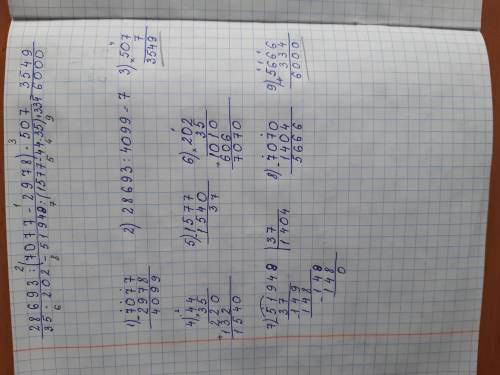 2 1 3
28693:(7077-2978)·507 3549
35·202-51948:(1577-44·35)+334 6000
6 8 7 5 4 9
1) -7077 2) 28693:4099=7 3) ×507
2978 7
4099 3549
4) ×44 5) -1577 6) ×202
35 1540 35
220 37 1010
+132 +606
1540 7070
7) 51948 |37 8) -7070 9) +5666
37 1404 1404 334
149 5666 6000
148
-148
148
0